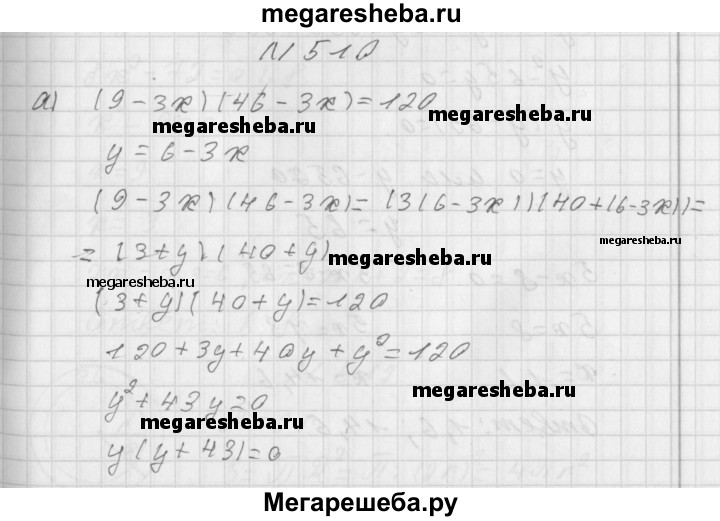 megaresheba.ru
N 510
а) (9 - 3x)(46 - 3x) = 120
megaresheba.ru megaresheba.ru
y = 6 - 3x
(9 - 3x)(46 - 3x) = (3(6 - 3x))(40 + (6 - 3x)) =
megaresheba.ru
= (3 + y)(40 + y)
megaresheba.ru
megaresheba.ru
(3 + y)(40 + y) = 120
120 + 3y + 40y + y² = 120
y² + 43y = 0
megaresheba.ru
y(y + 43) = 0
Мегарешеба.ру